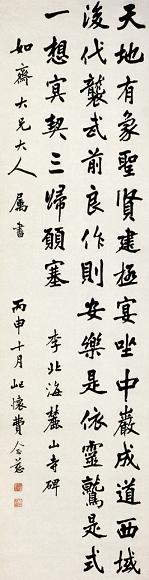 天地有象聖賢建極宴坐中巖成道西域
後代襲武前良作則安樂是依靈鷲是式
一想冥契三歸願塞　李北海麓山寺碑
如齋大兄大人属書　丙申十月屺懷費念慈